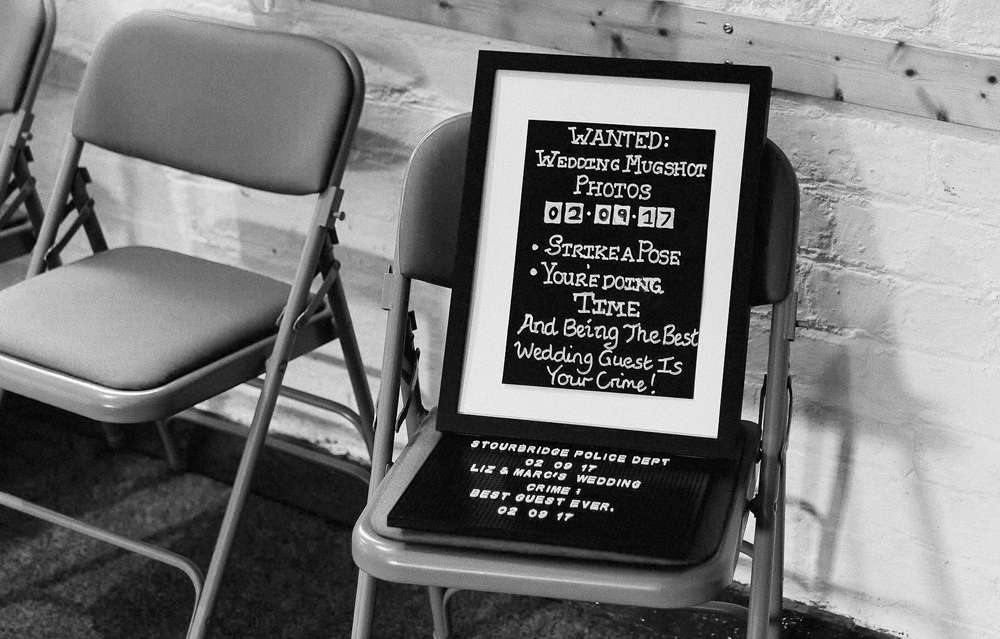 WANTED:
WEDDING MUGSHOT
PHOTOS
02·09·17
• STRIKE A POSE
• YOU'RE DOING
TIME
And Being The Best
Wedding Guest Is
Your Crime!
STOURBRIDGE POLICE DEPT
02 09 17
LIZ & MARC'S WEDDING
CRIME :
BEST GUEST EVER.
02 09 17